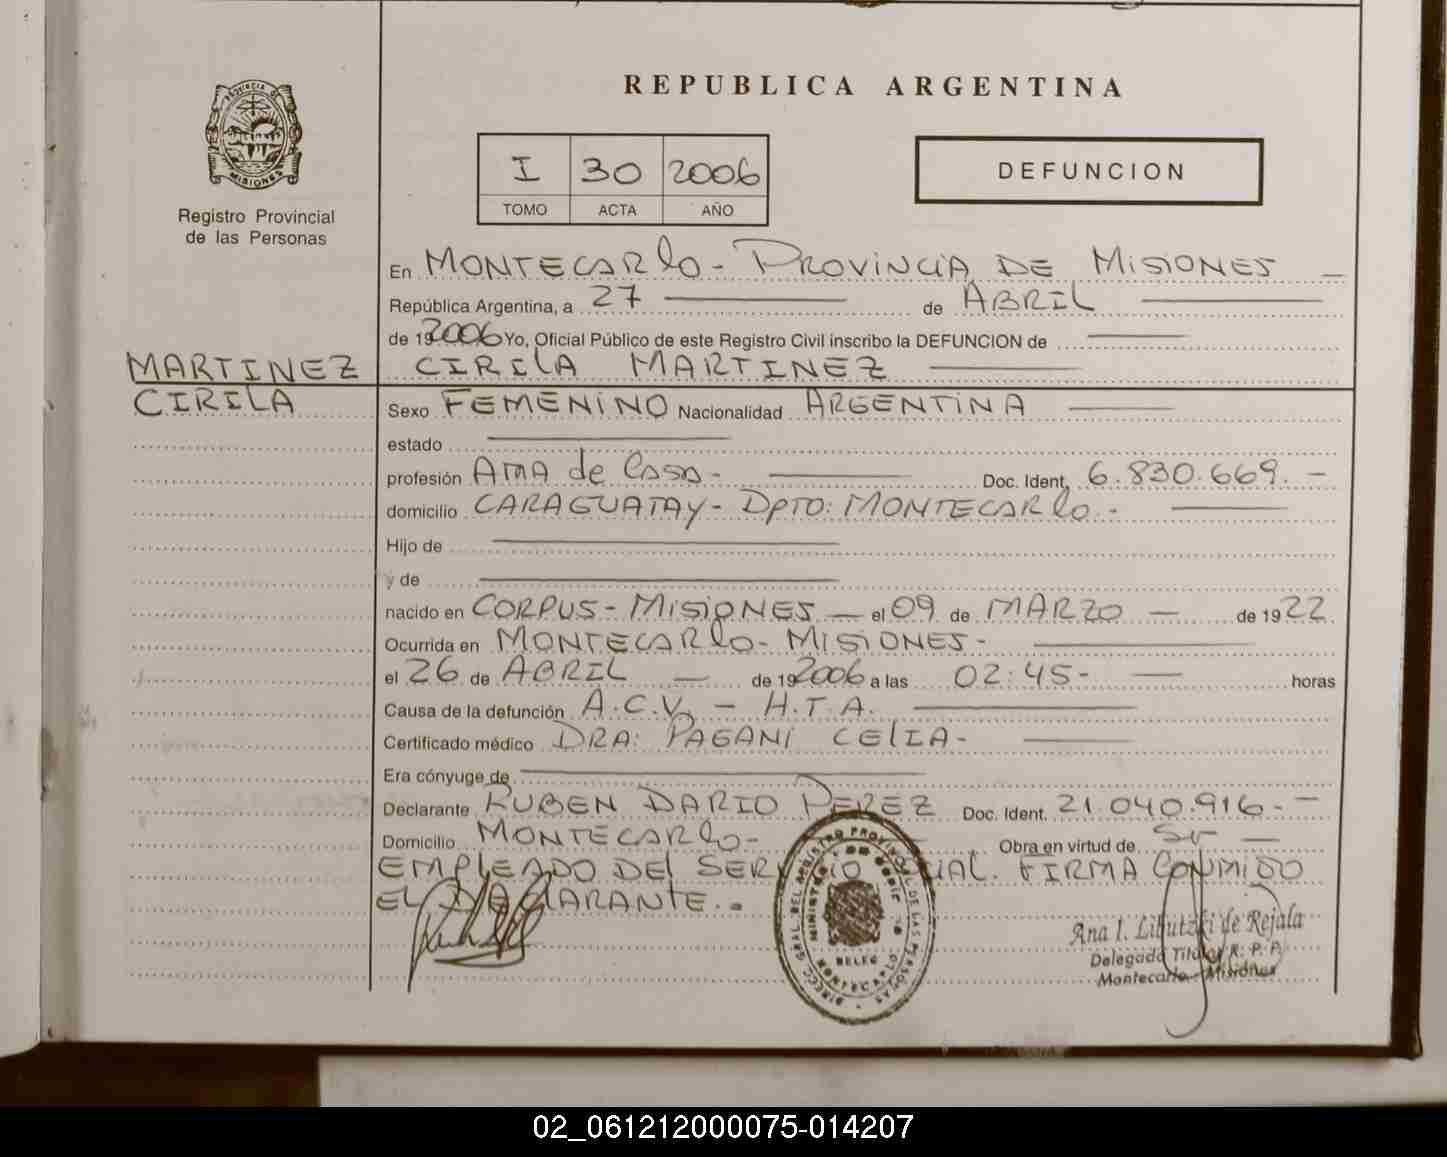 REPUBLICA ARGENTINA
PROVINCIA DE
MISIONES
Registro Provincial
de las Personas
I 30 2006
TOMO ACTA AÑO
DEFUNCION
En MONTECARLO - PROVINCIA DE MISIONES
República Argentina, a 27 de ABRIL
de 19 2006 Yo, Oficial Público de este Registro Civil inscribo la DEFUNCION de
MARTINEZ
CIRILA
CIRILA MARTINEZ
Sexo FEMENINO Nacionalidad ARGENTINA
estado
profesión AMA de CASA - Doc. Ident. 6.830.669. -
domicilio CARAGUATAY - DPTO: MONTECARLO. -
Hijo de
y de
nacido en CORPUS - MISIONES el 09 de MARZO de 1922
Ocurrida en MONTECARLO - MISIONES -
el 26 de ABRIL de 19 2006 a las 02:45 - horas
Causa de la defunción A.C.V. - H.T.A.
Certificado médico DRA: PAGANI CELIA -
Era cónyuge de
Declarante RUBEN DARIO PEREZ Doc. Ident. 21.040.916 - -
Domicilio MONTECARLO - Obra en virtud de
EMPLEADO DEL FIRMA
EL DECLARANTE. -
Ana I. de Rejala
Delegada Titular R. P. P.
Montecarlo - Misiones
02_061212000075-014207